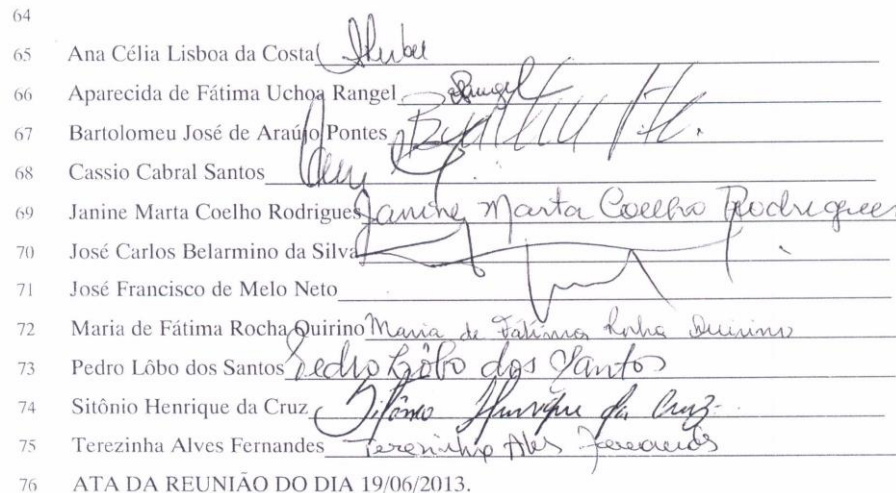 64
65 Ana Célia Lisboa da Costa
66 Aparecida de Fátima Uchoa Rangel Rangel
67 Bartolomeu José de Araújo Pontes
68 Cassio Cabral Santos
69 Janine Marta Coelho Rodrigues Janine Marta Coelho Rodrigues
70 José Carlos Belarmino da Silva
71 José Francisco de Melo Neto
72 Maria de Fátima Rocha Quirino Maria de Fátima Rocha Quirino
73 Pedro Lôbo dos Santos Pedro Lôbo dos Santos
74 Sitônio Henrique da Cruz Sitônio Henrique da Cruz
75 Terezinha Alves Fernandes Terezinha Alves Fernandes
76 ATA DA REUNIÃO DO DIA 19/06/2013.